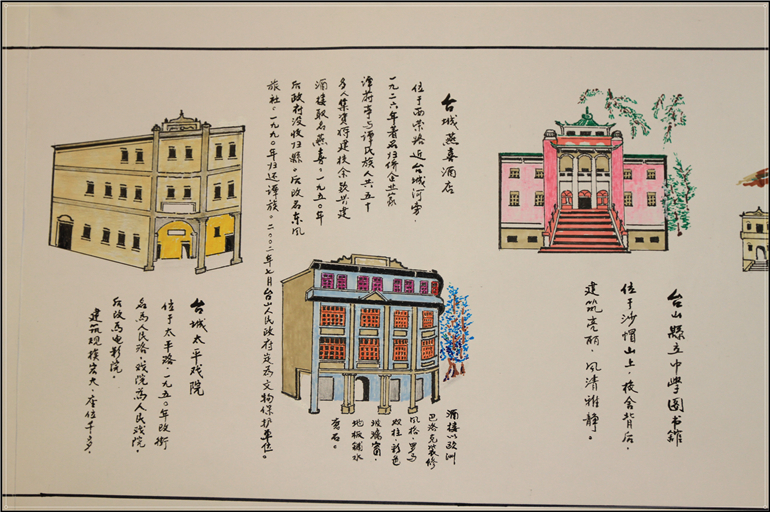 台山縣立中學图书館
位于沙帽山上，校舍背后，
建筑亮丽，风清雅静。
台城燕喜酒店
位于西荣路近台城河旁，
一九二六年著名归侨企业家
谭蔚亭与谭氏族人共五十
多人集资将建校余款兴建
酒楼取名燕喜。一九五〇年
后政府没收归縣。后改名东风
旅社。一九九〇年归还谭族。二〇〇二年七月台山人民政府定为文物保护单位。
酒楼以欧洲
巴洛克装修
风格，罗马
双柱，彩色
玻璃窗，
地板铺水
石。
台城太平戏院
位于太平路，一九五〇年改街
名为人民路，戏院为人民戏院，
后改为电影院，
建筑规模宏大，座位千多，